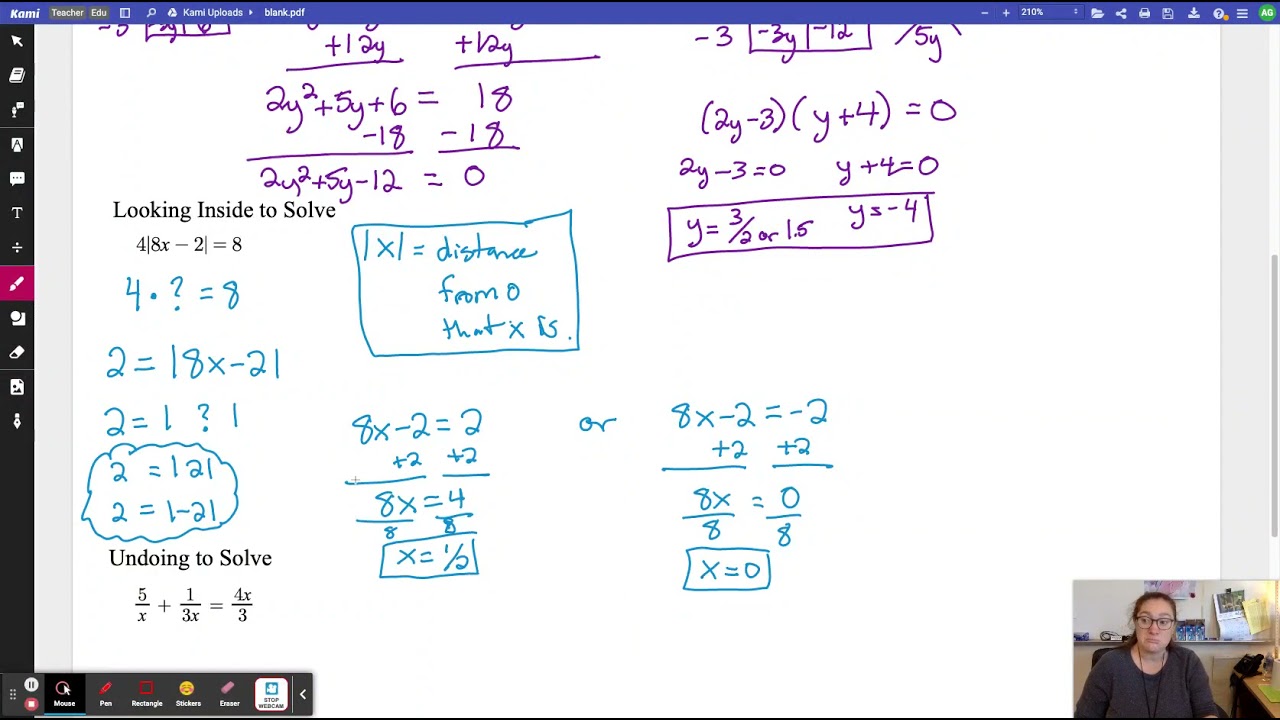 Kami Teacher Edu Kami Uploads > blank.pdf 210% AG
+12y +12y
-3 -3y -12 5y
2y²+5y+6 = 18
-18 -18
2y²+5y-12 = 0
(2y-3)(y+4) = 0
2y-3=0 y+4=0
y= 3/2 or 1.5 y=-4
Looking Inside to Solve
4|8x − 2| = 8
4 · ? = 8
2 = |8x-2|
2 = | ? |
2 = |2|
2 = |-2|
|x| = distance
from 0
that x is.
8x-2=2 or 8x-2=-2
+2 +2 +2 +2
8x=4 8x = 0
8 8 8 8
x=1/2 x=0
Undoing to Solve
5/x + 1/3x = 4x/3
Mouse Pen Rectangle Stickers Eraser STOP WEBCAM